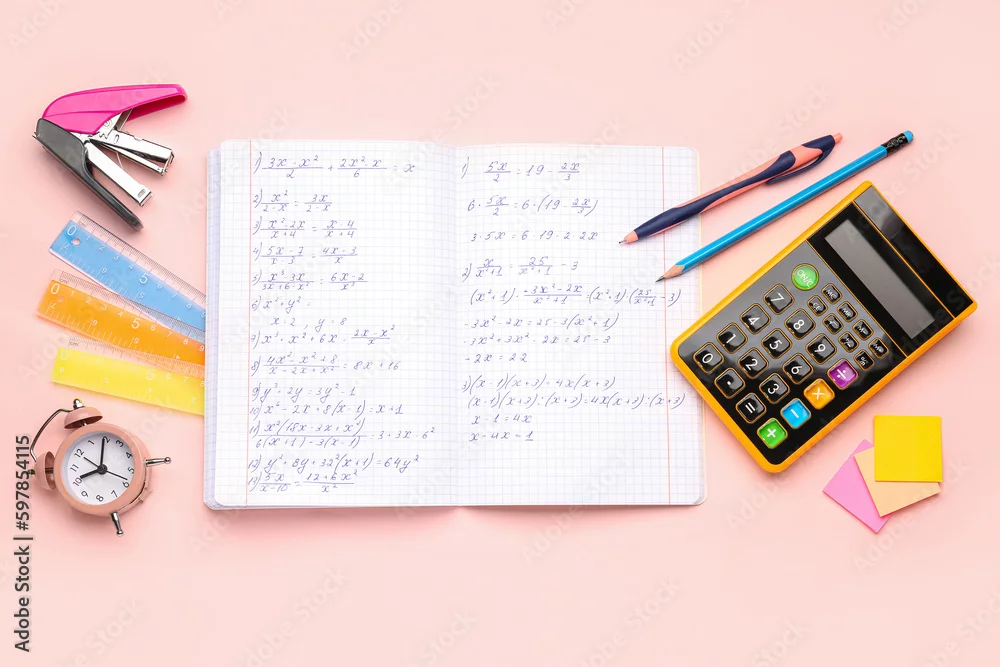 1) (3x - x²)/2 + (2x² · x)/6 = x
2) x²/(2-x) = 3x/(2-x)
3) (x² · 2x)/(x+4) = (x-4)/(x+4)
4) (5x-7)/(x-3) = (4x-3)/x
5) (x² · 3x)/(3x+6-x²) = (6x-2)/x²
6) x² + y² =
x = 2 y = 8
7) x³ · x² + 6x - (2x-x²)/x
8) (4x² · x² + 8)/(x - 2x + x²) = 8x + 16
9) y² - 2y = 3y² - 1
10) x² - 2x + 8(x-1) = x + 1
11) x²(15x - 3x + x²)/(6(x+1) - 3(x-1)) = 3 + 3x - 6²
12) y² + 8y + 32²(x+1) = 64y²
13) 5x/(x-10) = (12+6x²)/x²
1) 5x/2 = 19 - 2x/3
6 · 5x/2 = 6 · (19 - 2x/3)
3 · 5x = 6 · 19 - 2 · 2x
2) x/(x²+1) = 25/(x²+1) - 3
(x²+1) · (-3x² - 2x)/(x²+1) = (x²+1) · (25/(x²+1) - 3)
-3x² - 2x = 25 - 3(x²+1)
-3x² + 3x² - 2x = 25 - 3
-2x = 22
3) (x-1)(x+3) = 4x(x+3)
(x-1)(x+3) : (x+3) = 4x(x+3) : (x+3)
x - 1 = 4x
x - 4x = 1
0 5
0 5
0 5
ON/C
7 8 9
4 5 6 ÷
1 2 3 ×
0 . = + -
Adobe Stock | #597854115